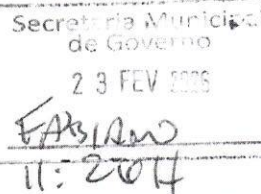 Secretaria Municipal
de Governo
23 FEV
FABIANO
11:20H